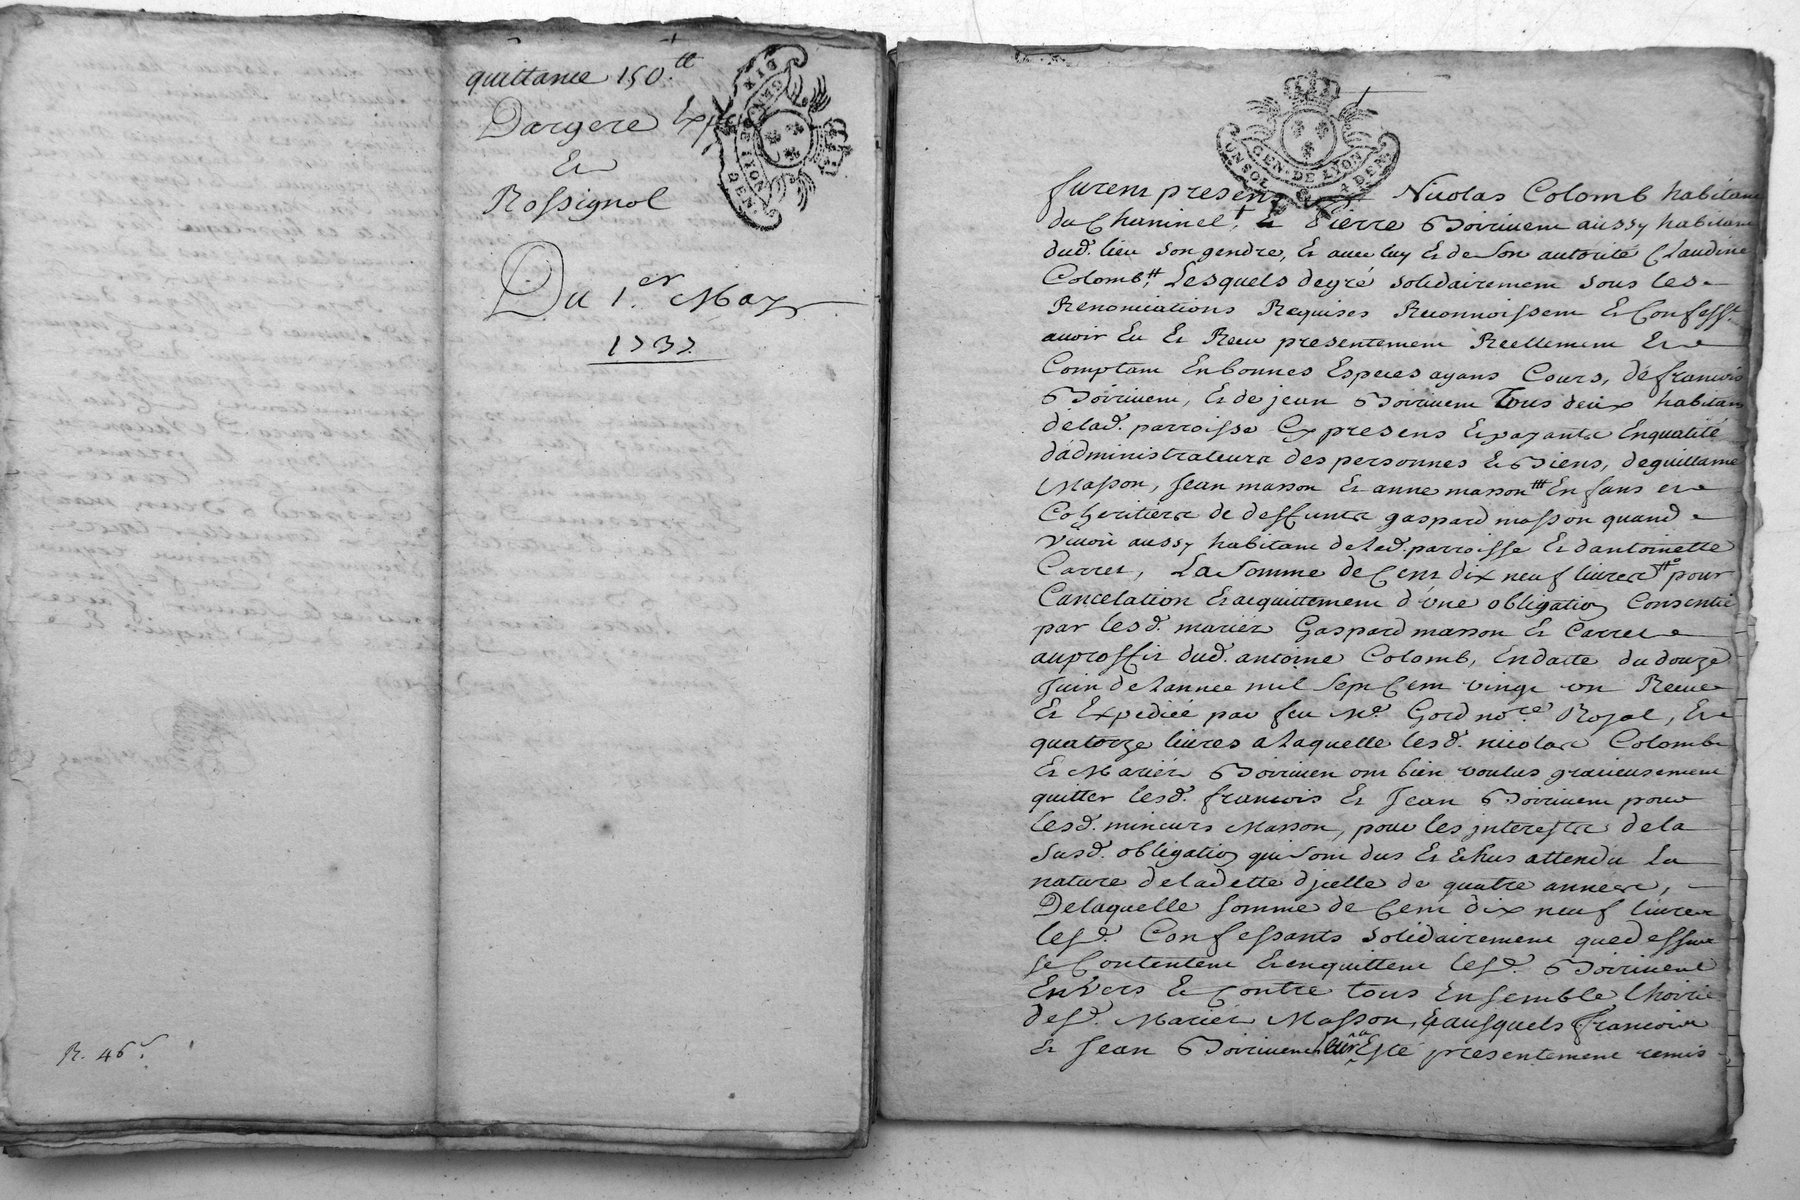 quittance 150.tt
Dargere Exp
Et
Rossignol
Du 1.er May
1737.
R. 46.s
DIX DEN.
GEN. DE LYON
GEN. DE LYON
UN SOL 4 DEN.
furent presens Nicolas Colomb habitant
du Chaninel, + Et Pierre Boiriuent aussy habitant
dud. lieu son gendre, Et auec luy Et de Son autorité Claudine
Colomb,# Lesquels degré solidairement sous les
Renonciations Requises Reconnoissent Et Confesst.
auoir Eu Et Receu presentement Reellement Et
Comptant En bonnes Especes ayans Cours, de francois
Boiriuent, Et de jean Boiriuent tous deux habitans
de lad. parroisse Cy presens Et payants En qualité
d'administrateurs des personnes & Biens, de guillaume
Masson, Jean masson Et anne masson Enfans et
Coheritiers de deffunts gaspard masson quand
viuoit aussy habitant de lad. parroisse Et dantoinette
Carret, La Somme de Cent dix neuf liures pour
Cancelation Et acquittement d'vne obligation Consentie
par lesd. mariez Gaspard masson Et Carret
au proffit dud. antoine Colomb, En datte du douze
Juin de Lannee mil Sept Cent vingt vn Receue
Et Expediée par feu Me. Gord no.re Royal, Et
quatorze liures a Laquelle lesd. nicolas Colomb
Et Mariez Boiriuen ont bien voulus gracieusement
quitter lesd. francois Et Jean Boiriuent pour
lesd. mineurs Masson, pour les interests de la
susd. obligation qui sont dus Et Echus attendu La
nature de la dette d'jcelle de quatre annees,
De laquelle somme de Cent dix neuf liures
lesd. Confessants solidairement que dessus
se Contentent Et en quittent lesd. Boiriuent
Envers & Contre tous Ensemble lhoirie
desd. Mariez Masson, & ausquels francois
Et Jean Boiriuent leur a Esté presentement remis